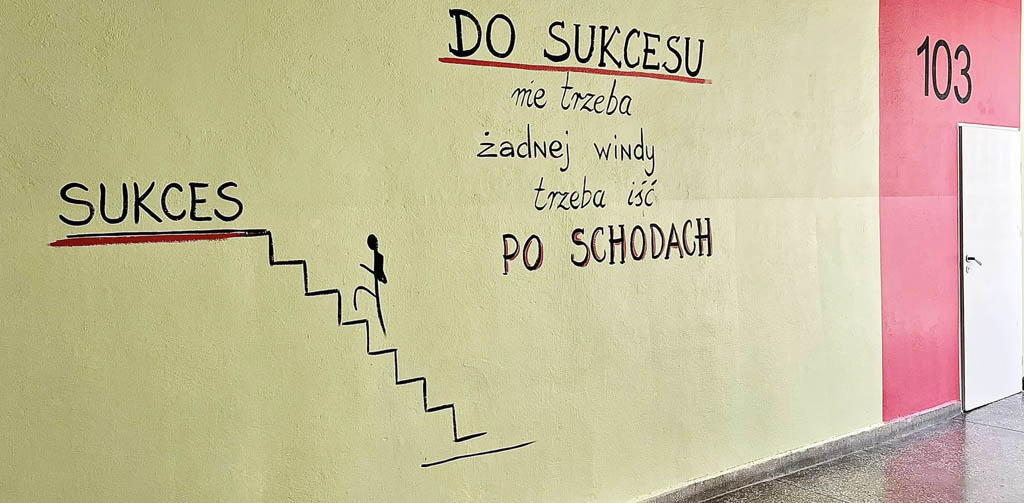 DO SUKCESU
nie trzeba
żadnej windy
trzeba iść
PO SCHODACH
SUKCES
103